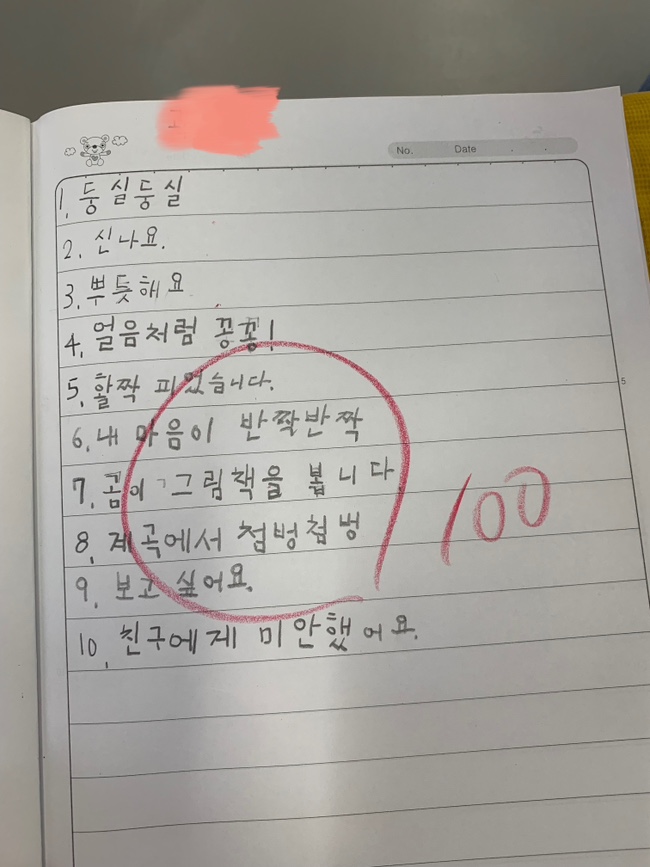 No. Date . .
1. 둥실둥실
2. 신나요.
3. 뿌듯해요
4. 얼음처럼 꽁꽁!
5. 활짝 피었습니다.
5
6. 내 마음이 반짝반짝
7. 곰이 그림책을 봅니다
8. 계곡에서 첨벙첨벙
100
9. 보고 싶어요.
10. 친구에게 미안했어요.